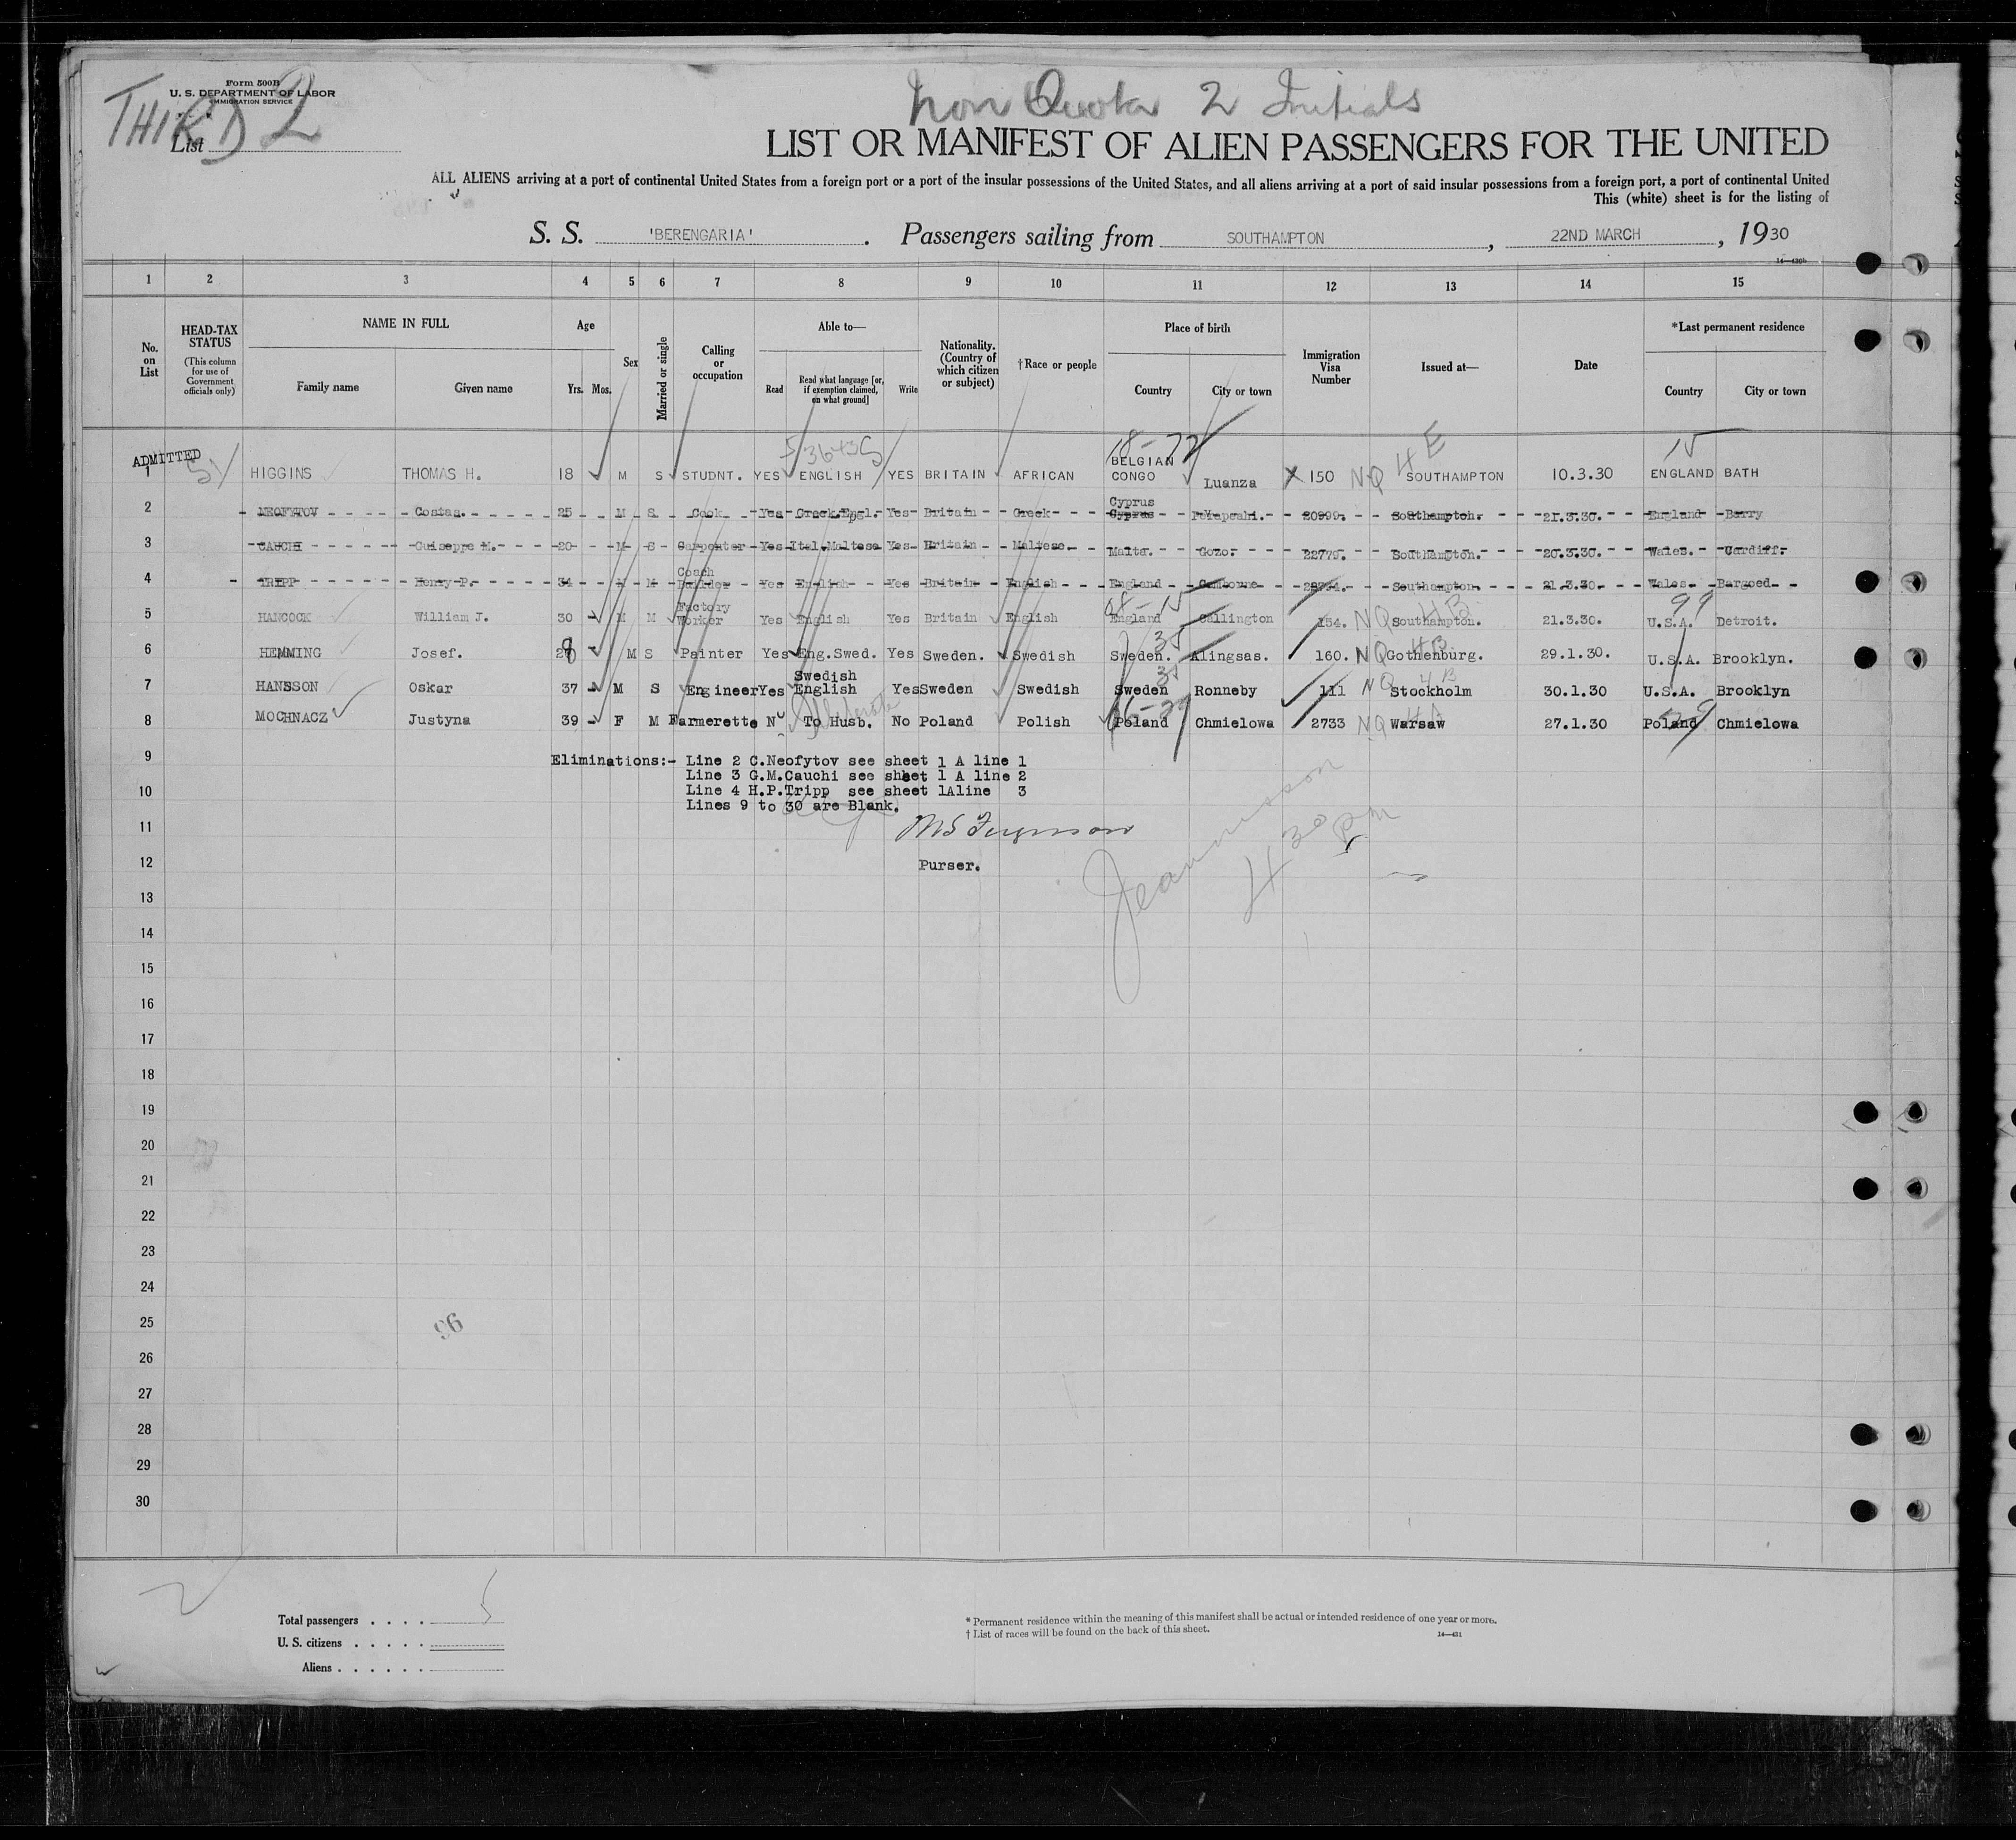 Form 500B
U. S. DEPARTMENT OF LABOR
IMMIGRATION SERVICE
THIRD 2
List
Non Quota 2 Initials
LIST OR MANIFEST OF ALIEN PASSENGERS FOR THE UNITED
ALL ALIENS arriving at a port of continental United States from a foreign port or a port of the insular possessions of the United States, and all aliens arriving at a port of said insular possessions from a foreign port, a port of continental United
This (white) sheet is for the listing of
S. S. 'BERENGARIA' . Passengers sailing from SOUTHAMPTON , 22ND MARCH , 1930
1 2 3 4 5 6 7 8 9 10 11 12 13 14 15
No. on List
HEAD-TAX STATUS (This column for use of Government officials only)
NAME IN FULL
Family name Given name
Age
Yrs. Mos.
Sex
Married or single
Calling or occupation
Able to—
Read Read what language [or, if exemption claimed, on what ground] Write
Nationality. (Country of which citizen or subject)
†Race or people
Place of birth
Country City or town
Immigration Visa Number
Issued at—
Date
*Last permanent residence
Country City or town
ADMITTED
1 HIGGINS THOMAS H. 18 M S STUDNT. YES ENGLISH YES BRITAIN AFRICAN BELGIAN CONGO Luanza 150 NQ 4E SOUTHAMPTON 10.3.30 ENGLAND BATH
2 NEOFYTOV Costas. 25 M S Cook Yes Greek.Engl. Yes Britain Greek Cyprus Cyprus 20999. Southampton. 21.3.30. England Barry
3 CAUCHI Guiseppe M. 20 M S Carpenter Yes Ital.Maltese Yes Britain Maltese. Malta. Gozo. 22779. Southampton. 20.3.30. Wales. Cardiff.
4 TRIPP Henry P. 34 M M Coach Builder Yes English Yes Britain English England Camborne Southampton 21.3.30. Wales. Bargoed
5 HANCOCK William J. 30 M M Factory Worker Yes English Yes Britain English England Callington 154. NQ 4B Southampton. 21.3.30. U.S.A. Detroit.
6 HEMMING Josef. 28 M S Painter Yes Eng.Swed. Yes Sweden. Swedish Sweden. Alingsas. 160. NQ 4B Gothenburg. 29.1.30. U.S.A. Brooklyn.
7 HANSSON Oskar 37 M S Engineer Yes Swedish English Yes Sweden Swedish Sweden Ronneby 111 NQ 4B Stockholm 30.1.30 U.S.A. Brooklyn
8 MOCHNACZ Justyna 39 F M Farmerette No To Husb. No Poland Polish Poland Chmielowa 2733 NQ Warsaw 27.1.30 Poland Chmielowa
9 Eliminations:- Line 2 C.Neofytov see sheet 1 A line 1
Line 3 G.M.Cauchi see sheet 1 A line 2
10 Line 4 H.P.Tripp see sheet 1A line 3
Lines 9 to 30 are Blank.
11
12 Purser.
4 30 pm
13
14
15
16
17
18
19
20
21
22
23
24
25
26
27
28
29
30
96
Total passengers . . . . 5
U. S. citizens . . . . .
Aliens . . . . . .
* Permanent residence within the meaning of this manifest shall be actual or intended residence of one year or more.
† List of races will be found on the back of this sheet.
14—431